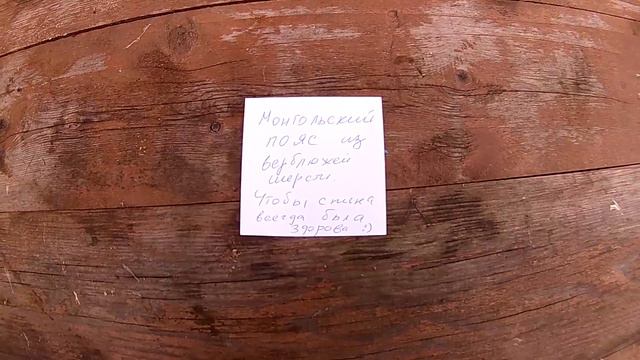 Монгольский
пояс из
верблюжей
шерсти.
Чтобы, спина
всегда была
здорова :)